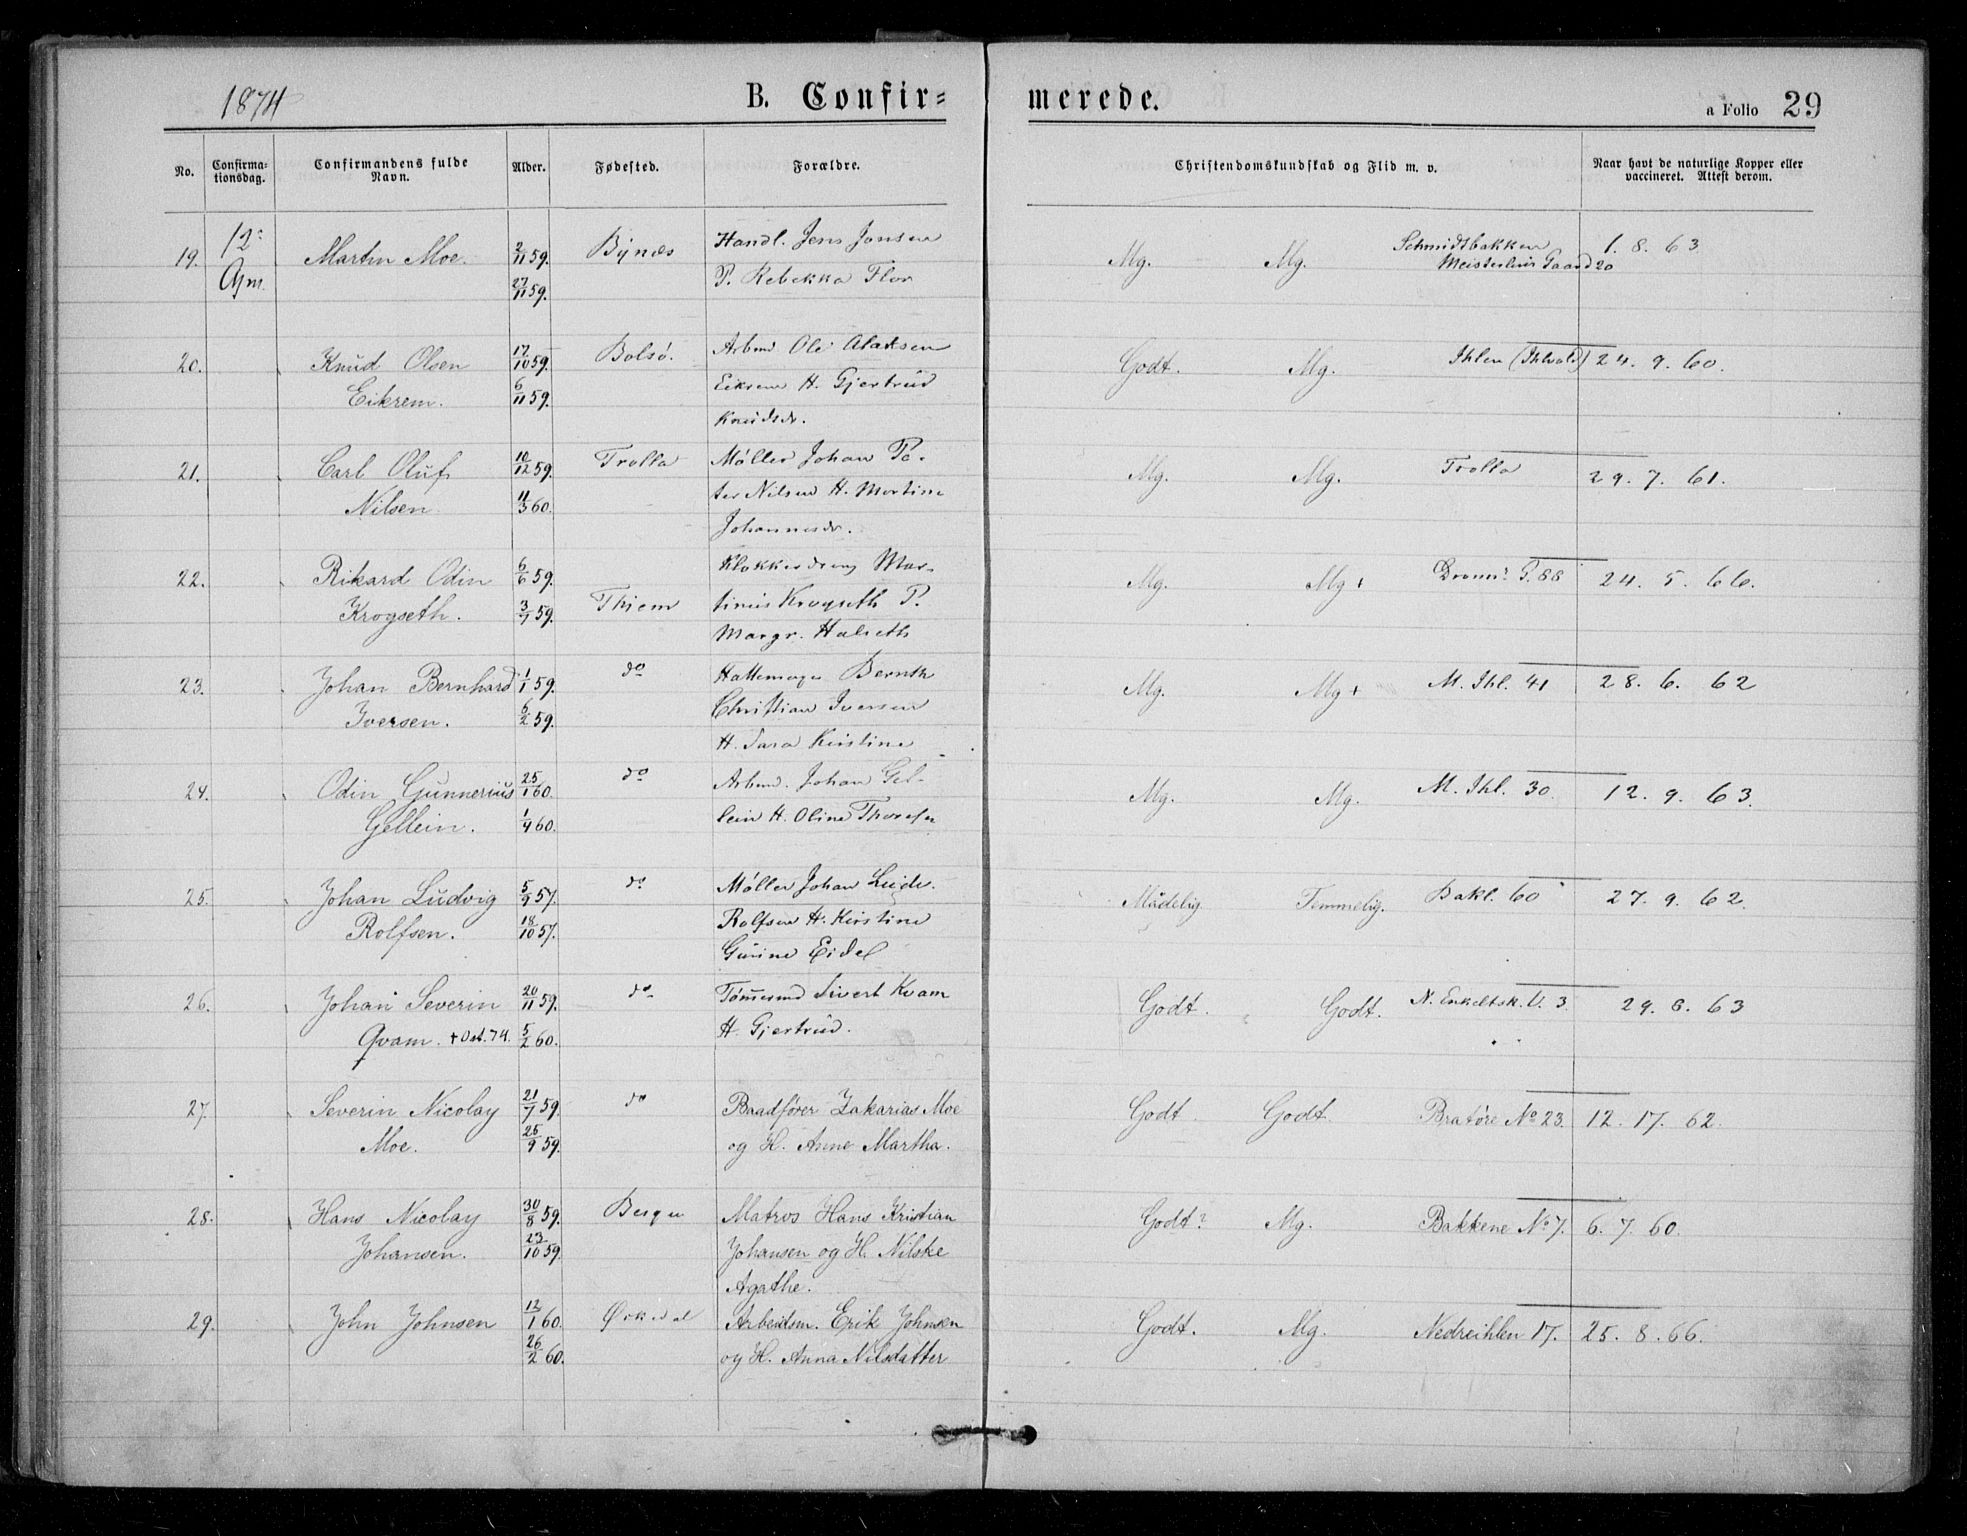 1874 B. Confir= merede. a Folio 29
No. Confirma-tionsdag. Confirmandens fulde Navn. Alder. Fødested. Forældre. Christendomskundskab og Flid m. v. Naar havt de naturlige Kopper eller vaccineret. Attest derom.
19. 12: Martin Moe. 2/11 59. Bynæs Handl. Jens Jonsen Mg. Mg. Schmidtbakken 1. 8. 63
27/11 59. P. Rebekka Flor Gaard 20
20. Knud Olsen 17/10 59. Bolsø. Arbmd Ole Godt. Mg. Ihlen 24. 9. 60.
Eikrem. 6/11 59. Eikrem H. Gjertrud
Knudsdr.
21. Carl Oluf 10/12 59. Trolla Møller Johan Pe- Mg. Mg. Trolla 29. 7. 61.
Nilsen 11/3 60. ter Nilsen H. Martine
Johannesdr.
22. Rikard Odin 6/6 59. Klokkerdreng Mar- Mg. Mg+ P. 88 24. 5. 66.
Krogseth. 3/7 59. Thjem tinus Krogseth P.
Margr. Halseth
23. Johan Bernhard 1/1 59. do Hattemager Bernth Mg. Mg+ M. Ihl. 41 28. 6. 62
Iversen. 6/2 59. Christian Iversen
H. Sara Kirstine
24. Odin Gunnerius 25/1 60. do Arbmd. Johan Gel- Mg. Mg. M. Ihl. 30. 12. 9. 63.
Gellein. 1/4 60. lein H. Oline
25. Johan Ludvig 5/9 57. do Møller Johan Ludv. Mådelig. Temmelig. Bakl. 60 27. 9. 62.
Rolfsen. 18/10 57. Rolfsen H. Kirstine
Gurine Eidel
26. Johan Severin 20/11 59. do Tømmermd Sivert Kvam Godt. Godt. N. Enkeltsk. V. 3. 29. 8. 63
Qvam. + Oct. 74. 5/2 60. H. Gjertrud.
27. Severin Nicolay 21/7 59. do Baadfører Zakarias Moe Godt. Godt. Bratøre No 23. 12. 17. 62.
Moe. 25/9 59. og H. Anne Martha.
28. Hans Nicolay 30/8 59. Bergen Matros Hans Kristian Godt? Mg. Bakkene No 7. 6. 7. 60.
Johansen. 23/10 59. Johansen og H. Nilske
Agathe.
29. John Johnsen 12/1 60. Ørkedal Arbeidsm. Erik Johnsen Godt. Mg. Nedreihlen 17. 25. 8. 66.
26/2 60. og H. Anna Nilsdatter